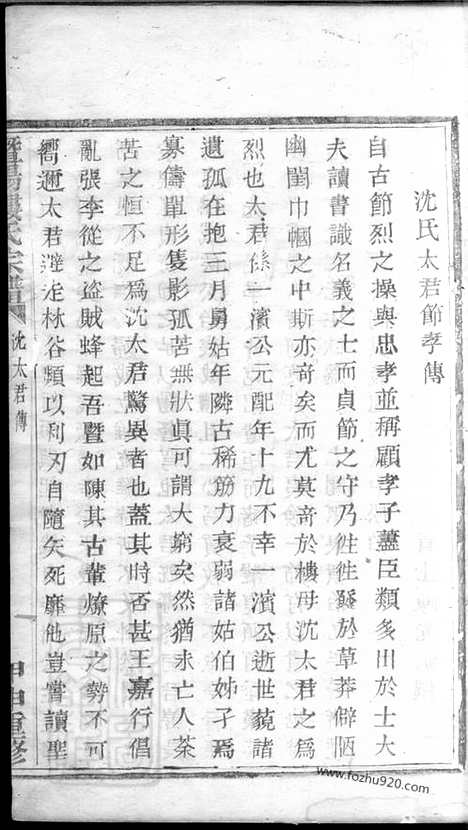 沈氏太君節孝傳
自古節烈之操與忠孝並稱顧孝子藎臣類多出於士大
夫讀書識名義之士而貞節之守乃徃徃發於草莽僻陋
幽閨巾幗之中斯亦奇矣而尤莫奇於樓母沈太君之爲
烈也太君係一濱公元配年十九不幸一濱公逝世藐諸
遺孤在抱三月舅姑年隣古稀筋力衰弱諸姑伯姊孑焉
寡儔單形隻影孤苦無狀眞可謂大窮矣然猶未亡人荼
苦之恒不足爲沈太君驚異者也蓋其時否甚王嘉行倡
亂張李從之盜賊蜂起吾暨如陳其古輩燎原之勢不可
嚮邇太君避走林谷類以利刃自隨矢死靡他豈嘗讀聖
暨陽樓氏宗譜
沈太君傳
甲申重修
www.fozhu920.com